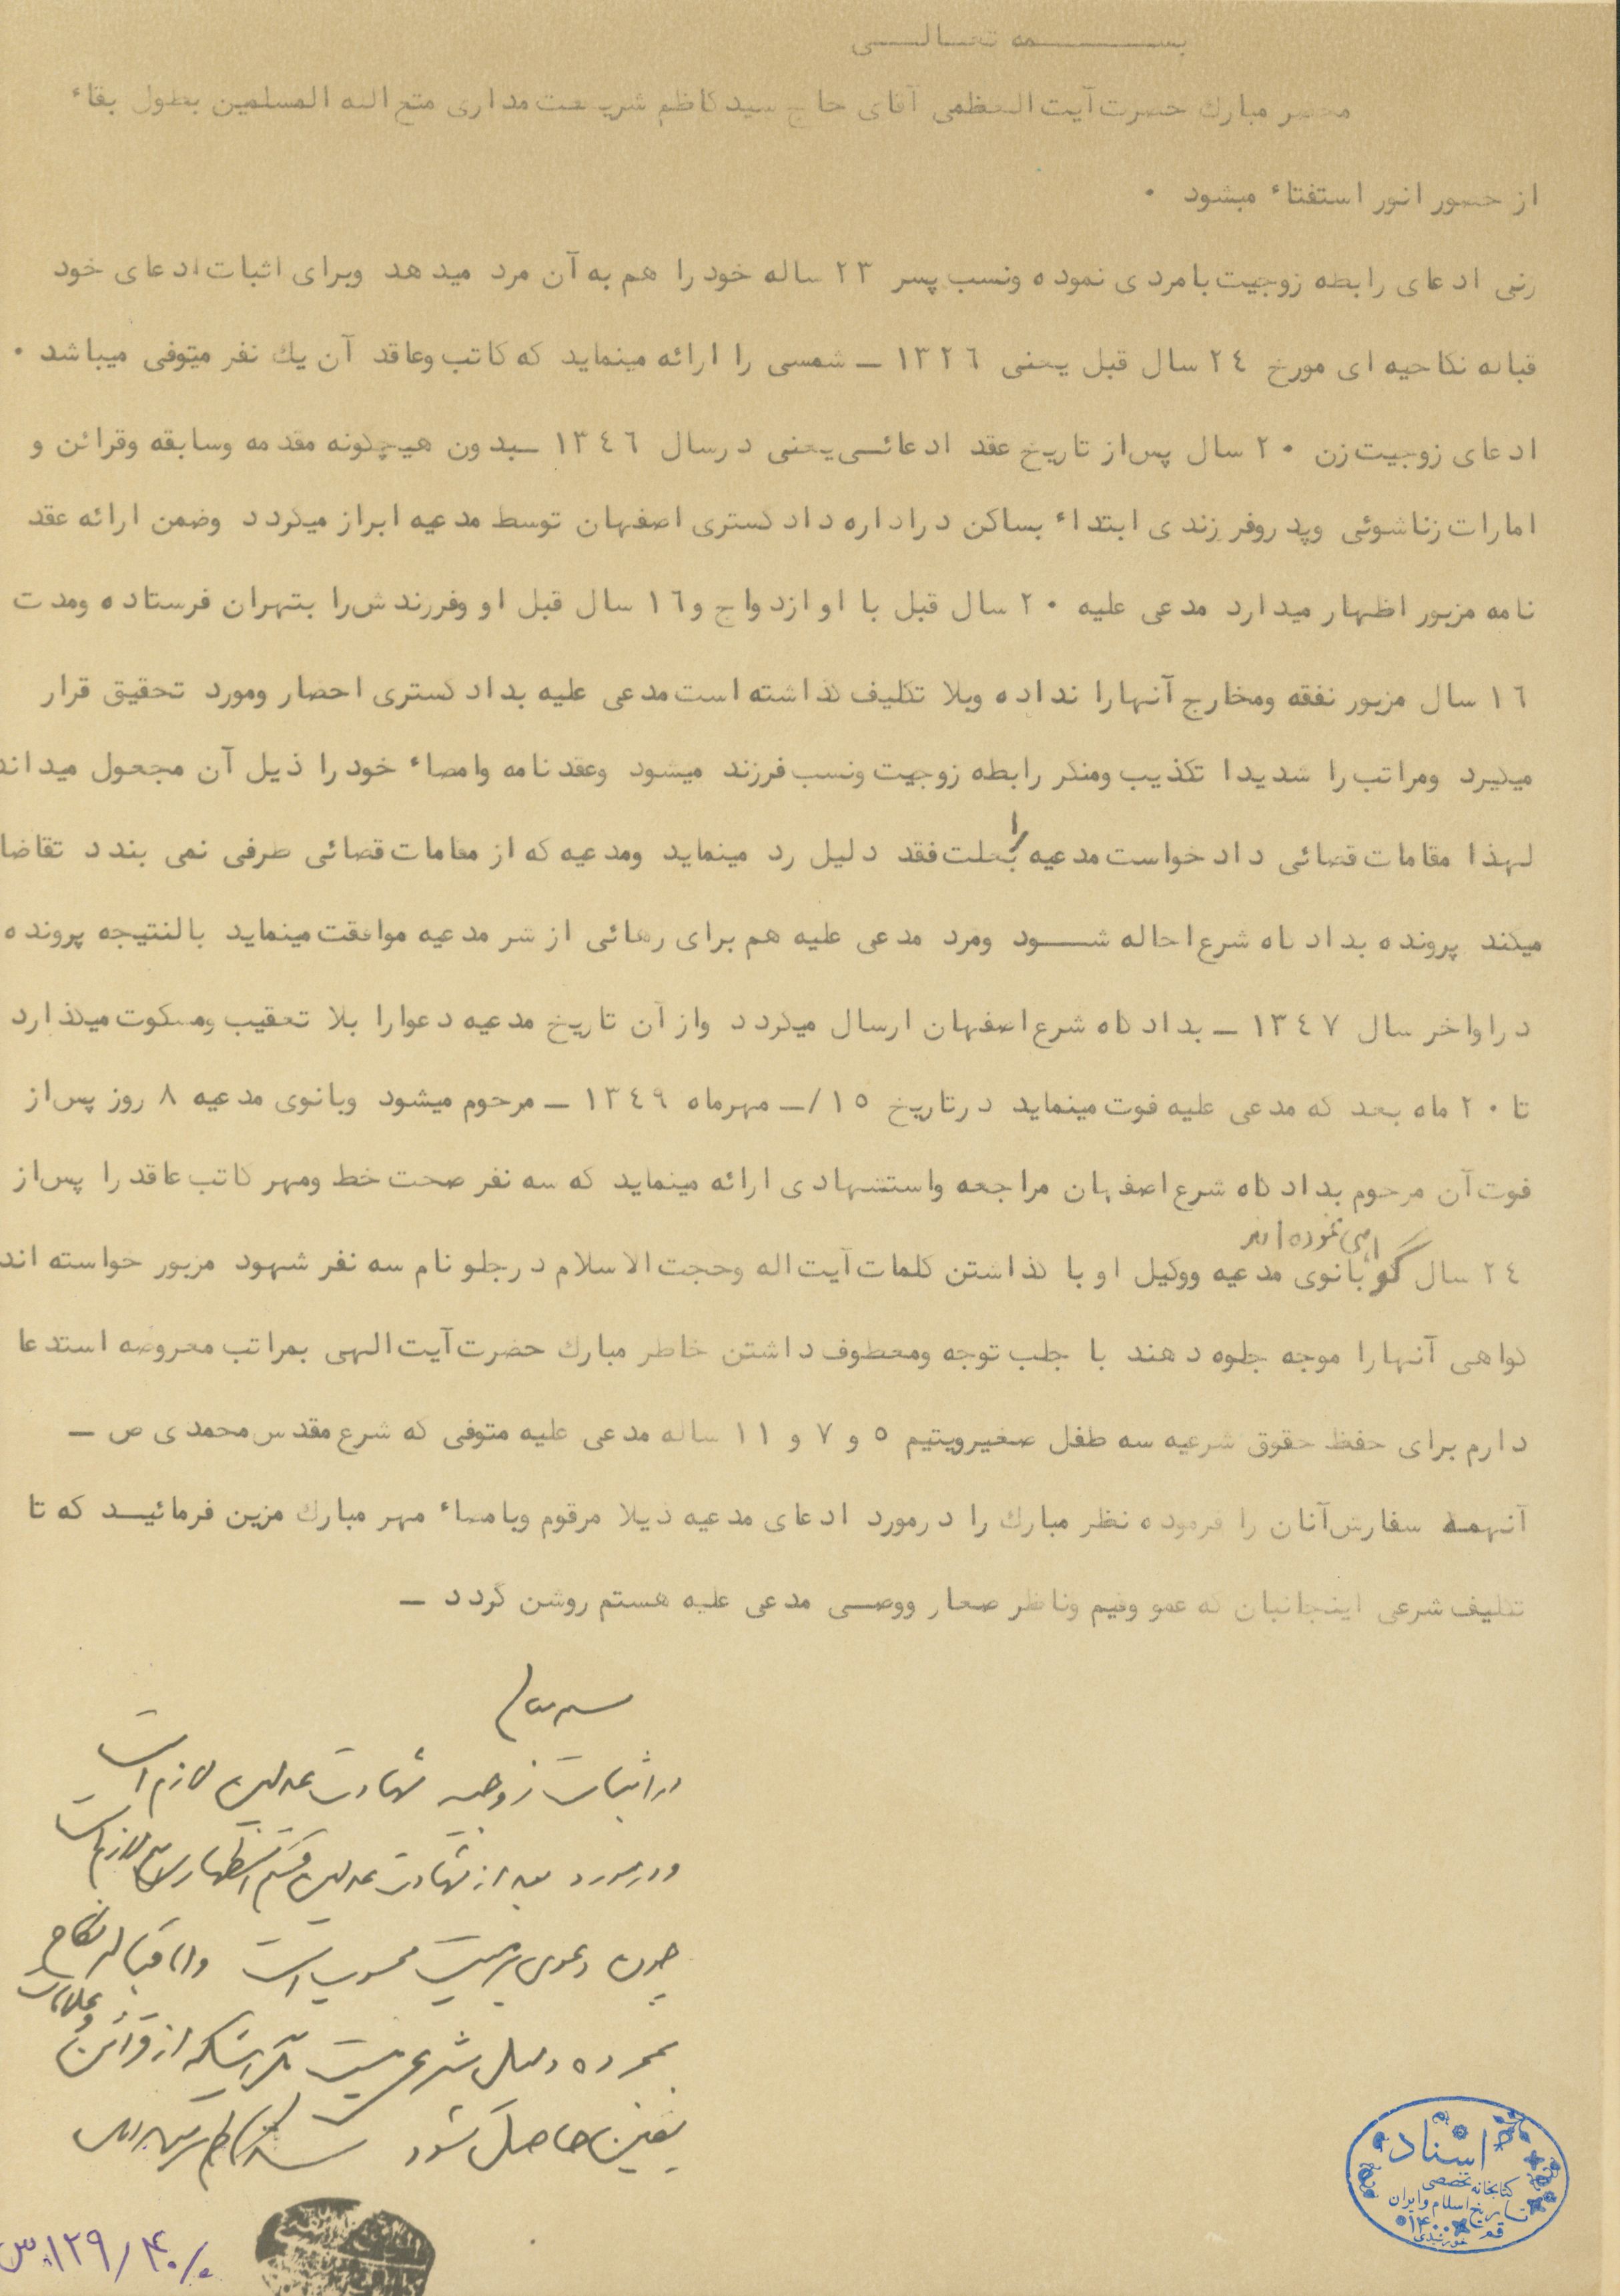 بسمه تعالی
محضر مبارك حضرت آیت العظمی آقای حاج سید کاظم شریعت مداری متع اله المسلمین بطول بقاء
از حضور انور استفتاء میشود ٠
زنی ادعای رابطه زوجیت با مردی نموده ونسب پسر ٢٣ ساله خود را هم به آن مرد میدهد وبرای اثبات ادعای خود
قباله نکاحیه ای مورخ ٢٤ سال قبل یعنی ١٣٢٦ ــ شمسی را ارائه مینماید که کاتب وعاقد آن یك نفر متوفی میباشد ٠
ادعای زوجیت زن ٢٠ سال پس از تاریخ عقد ادعائی یعنی درسال ١٣٤٦ ــ بدون هیچگونه مقدمه وسابقه وقرائن و
امارات زناشوئی وپدروفرزندی ابتداء بساکن دراداره دادگستری اصفهان توسط مدعیه ابراز میگردد وضمن ارائه عقد
نامه مزبور اظهار میدارد مدعی علیه ٢٠ سال قبل با او ازدواج و١٦ سال قبل او وفرزندش را بتهران فرستاده ومدت
١٦ سال مزبور نفقه ومخارج آنهارا نداده وبلا تکلیف گذاشته است مدعی علیه بدادگستری احضار ومورد تحقیق قرار
میگیرد ومراتب را شدیدا تکذیب ومنکر رابطه زوجیت ونسب فرزند میشود وعقدنامه وامضاء خودرا ذیل آن مجعول میداند
لهذا مقامات قضائی دادخواست مدعیه را بعلت فقد دلیل رد مینماید ومدعیه که از مقامات قضائی طرفی نمی بندد تقاضا
میکند پرونده بدادگاه شرع احاله شود ومرد مدعی علیه هم برای رهائی از شر مدعیه موافقت مینماید بالنتیجه پرونده
دراواخر سال ١٣٤٧ ــ بدادگاه شرع اصفهان ارسال میگردد واز آن تاریخ مدعیه دعوارا بلا تعقیب ومسکوت میگذارد
تا ٢٠ ماه بعد که مدعی علیه فوت مینماید درتاریخ ١٥/ــ مهرماه ١٣٤٩ ــ مرحوم میشود وبانوی مدعیه ٨ روز پس از
فوت آن مرحوم بدادگاه شرع اصفهان مراجعه واستشهادی ارائه مینماید که سه نفر صحت خط ومهر کاتب عاقد را پس از
٢٤ سال گواهی نموده اند بانوی مدعیه ووکیل او با گذاشتن کلمات آیت اله وحجت الاسلام درجلو نام سه نفر شهود مزبور خواسته اند
گواهی آنهارا موجه جلوه دهند با جلب توجه ومعطوف داشتن خاطر مبارك حضرت آیت الهی بمراتب معروضه استدعا
دارم برای حفظ حقوق شرعیه سه طفل صغیرویتیم ٥ و ٧ و ١١ ساله مدعی علیه متوفی که شرع مقدس محمدی ص ــ
آنهمه سفارش آنان را فرموده نظر مبارك را درمورد ادعای مدعیه ذیلا مرقوم وبامضاء مهر مبارك مزین فرمائید که تا
تکلیف شرعی اینجانبان که عمو وقیم وناظر صغار ووصی مدعی علیه هستم روشن گردد ــ
بسمه تعالی
در اثبات زوجیت شهادت عدلین لازم است
و در مورد بعد از شهادت عدلین قسم استظهاری لازم است
چون دعوی بر میت محسوب است و اما قباله نکاح
بمجرده دلیل شرعی نیست مگر اینکه از قرائن و علامات
یقین حاصل شود سید کاظم شریعتمداری
اسناد
کتابخانه تخصصی
تاریخ اسلام و ایران
قم